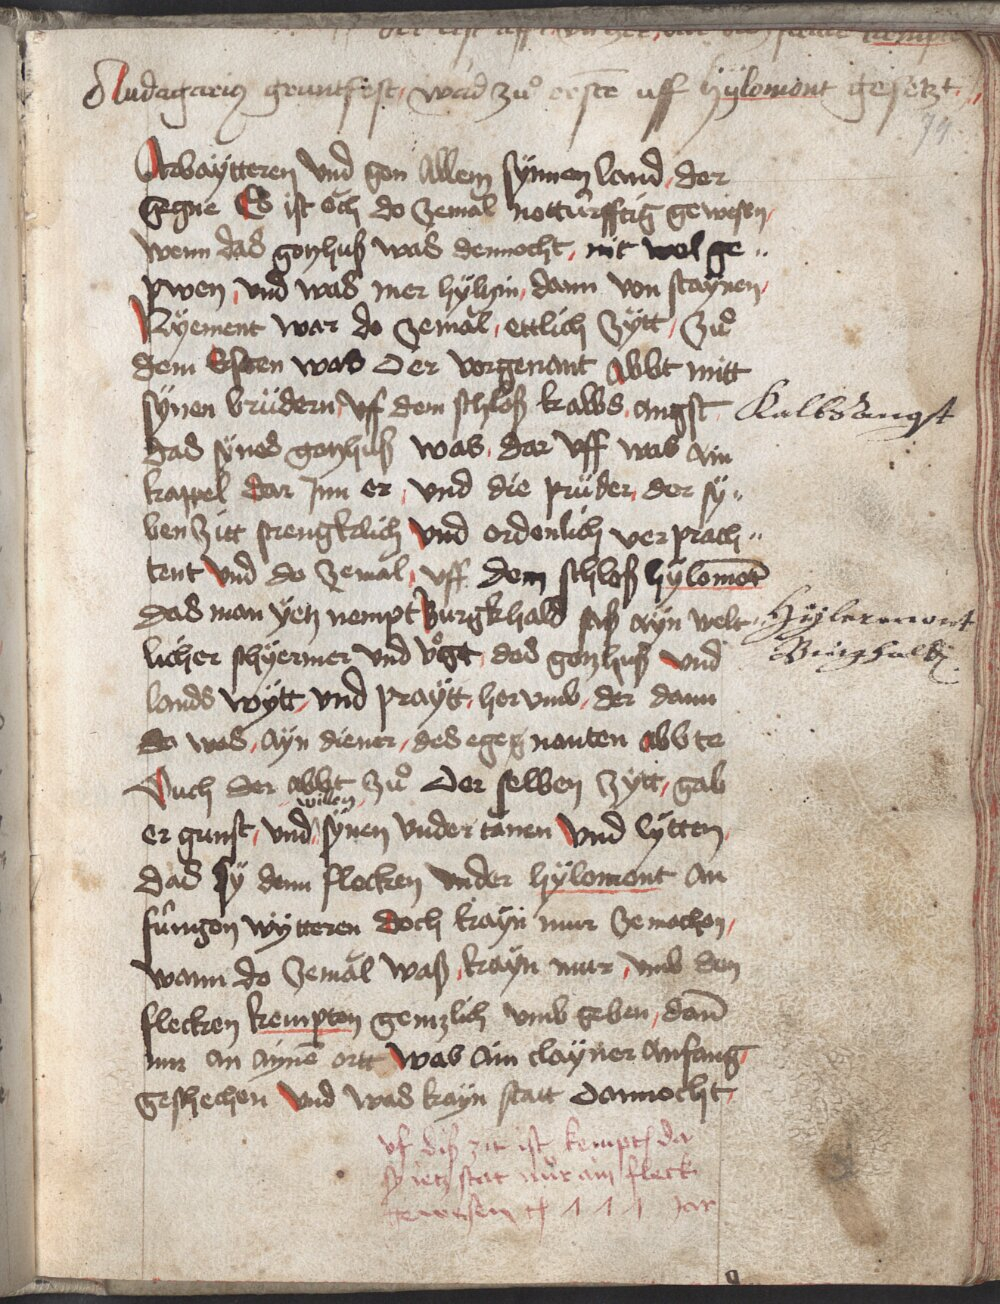 Audagarius gruntfest, was zů erste uff Hÿlomont gesetzt.
74
Arbaÿtteren Vnd gon Allem sÿnnen land, der
gegne Es ist och do zemal notturfftig gewesen,
wenn das gotzhuß was dennocht, nit wol ge„
pwen, vnd was mer hÿltzin, dann von staÿnen,
Paÿement war do zemal, ettlich zÿtt, zů
dem Esten was Der vorgenant Abbt mitt
sÿnen brüdern, Vf dem schloß kalbs angst
Kalbsangst
das sÿnes gotzhuß was, dar Vff was Ain
kappel dar Jnn er, vnd die prüder, der sÿ„
ben zitt strengklich vnd ordenlich verprach„
tent Vnd do zemal, vff dem schloß hÿlomot
das man ÿetz nempt Burgkhald saß aÿn welt
Hÿleremont
Burghald
licher schÿermer vnd vogt, des gotzhuß vnd
lands wÿtt, vnd praÿtt, her vmb, der dann
do was, aÿn diener, des egeg nanten abbte
Auch der abbt zů Der selben zÿtt, gab
willen
er gunst, vnd sÿnen Vnder tanen Vnd lÿtten,
das sÿ denn flecken vnder hÿlomont An
fûngen wÿtteren doch kaÿn mur zemachen,
wann do zemal waß, kaÿn mur, vmb den
flecken kempten gentzlich vmb geben, dan̄
nur an aine ortt was ain claÿner anfang,
geschechen Vnd was kaÿn statt dannocht,
vf diß zit ist kempt da
sy ietz stat nur ain fleck
gewesen 111 Jar